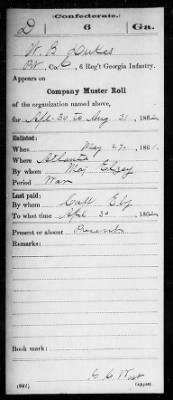 (Confederate.)
D 6 Ga.
W. B. Dukes
Pvt, Co. , 6 Reg't Georgia Infantry.
Appears on
Company Muster Roll
of the organization named above,
for Apl. 30 to Aug 31, 1862
Enlisted:
When May 27, 1861
Where Atlanta
By whom Maj
Period War
Last paid:
By whom Capt
To what time April 30, 1862
Present or absent Present
Remarks:
Book mark:
(642) Copyist.